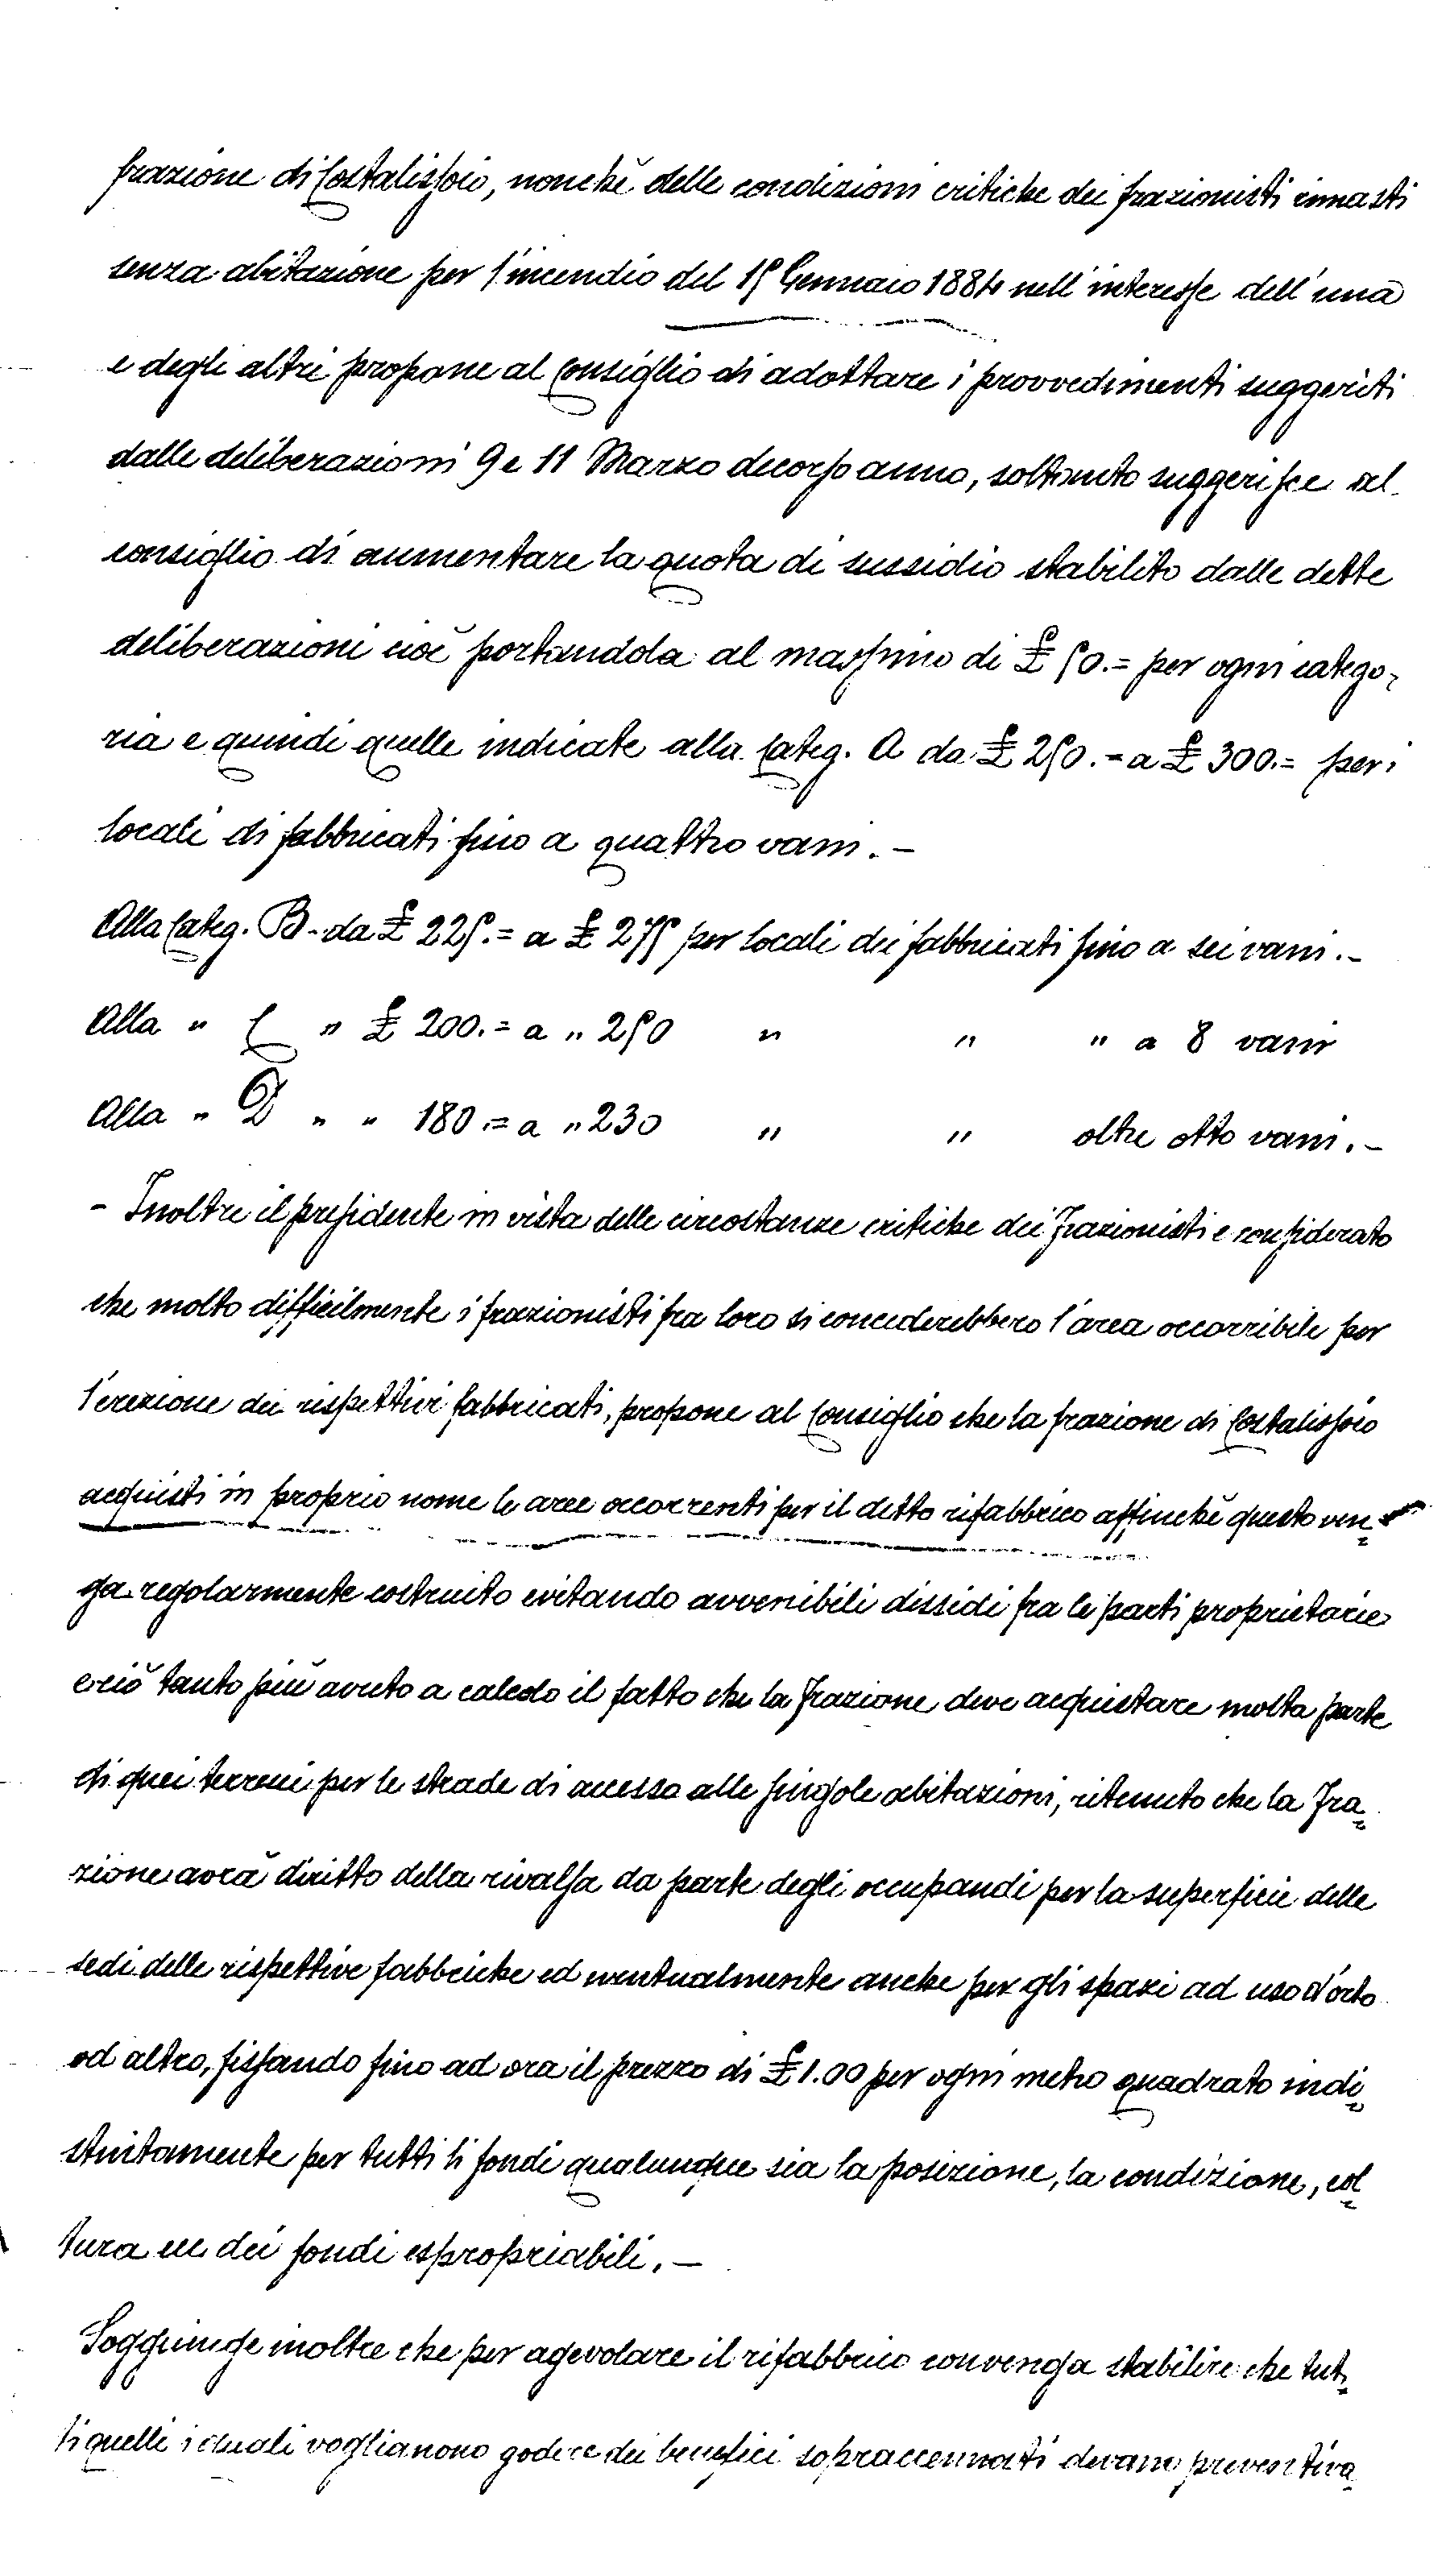 frazione di Costalissoio, nonchè delle condizioni critiche dei frazionisti rimasti
senza abitazione per l'incendio del 15 Gennaio 1884 nell'interesse dell'una
e degli altri propone al Consiglio di adottare i provvedimenti suggeriti
dalle deliberazioni 9 e 11 Marzo decorso anno, soltanto suggerisce al
consiglio di aumentare la quota di sussidio stabilito dalle dette
deliberazioni cioè portandola al massimo di £ 50.= per ogni catego=
ria e quindi quelle indicate alla Categ. A da £ 250.= a £ 300.= per i
locali di fabbricati fino a quattro vani. -
Alla Categ. B. da £ 225.= a £ 275 per locali dei fabbricati fino a sei vani. -
Alla " C " £ 200.= a " 250 " " " a 8 vani
Alla " D " " 180.= a " 230 " " oltre otto vani. -
- Inoltre il presidente in vista delle circostanze critiche dei Frazionisti e considerato
che molto difficilmente i frazionisti fra loro si concederebbero l'area occorribile per
l'erezione dei rispettivi fabbricati, propone al Consiglio che la frazione di Costalissoio
acquisti in proprio nome le aree occorrenti per il detto rifabbrico affinchè questo ven=
ga regolarmente costruito evitando avvenibili dissidi fra le parti proprietarie
e ciò tanto più avuto a calcolo il fatto che la Frazione deve acquistare molta parte
di quei terreni per le strade di accesso alle singole abitazioni, ritenuto che la Fra=
zione avrà diritto della rivalsa da parte degli occupandi per la superficie delle
sedi delle rispettive fabbriche ed eventualmente anche per gli spazi ad uso d'orto
od altro, fissando fino ad ora il prezzo di £ 1.00 per ogni metro quadrato indi=
stintamente per tutti li fondi qualunque sia la posizione, la condizione, col=
tura ecc dei fondi espropriabili. -
Soggiunge inoltre che per agevolare il rifabbrico convenga stabilire che tut=
ti quelli i quali vogliano godere dei benefici sopraccennati devano preventiva=